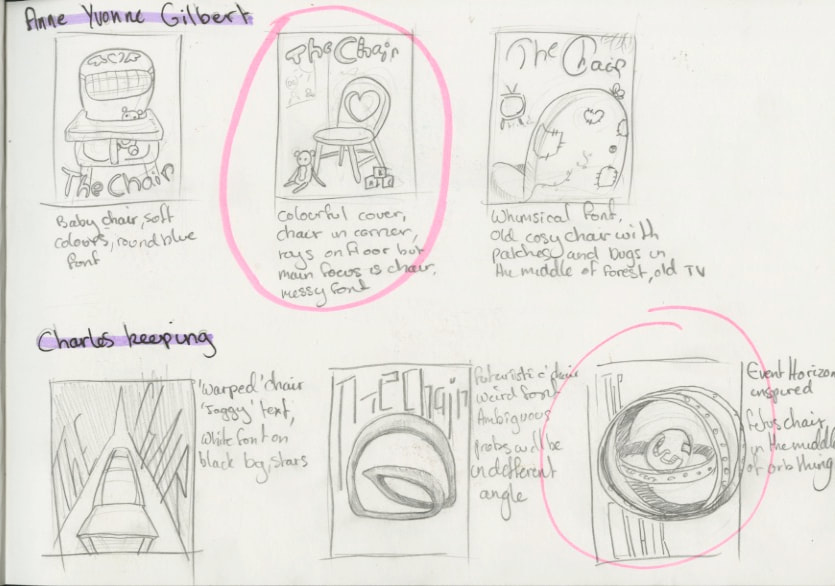 Anne Yvonne Gilbert
The Chair
Baby chair, soft
colours, round blue
font
The Chair
Colourful cover,
chair in corner,
toys on floor but
main focus is chair,
messy font
The Chair
Whimsical font,
Old cosy chair with
patches and bugs in
the middle of forest, old TV
Charles keeping
'warped' chair
'Jaggy' text,
white font on
black bg, stars
The Chair
Futuristic chair
weird font
Ambiguous
Probs will be
in different
angle
Event Horizon
inspired
Fetus chair
in the middle
of orb thing